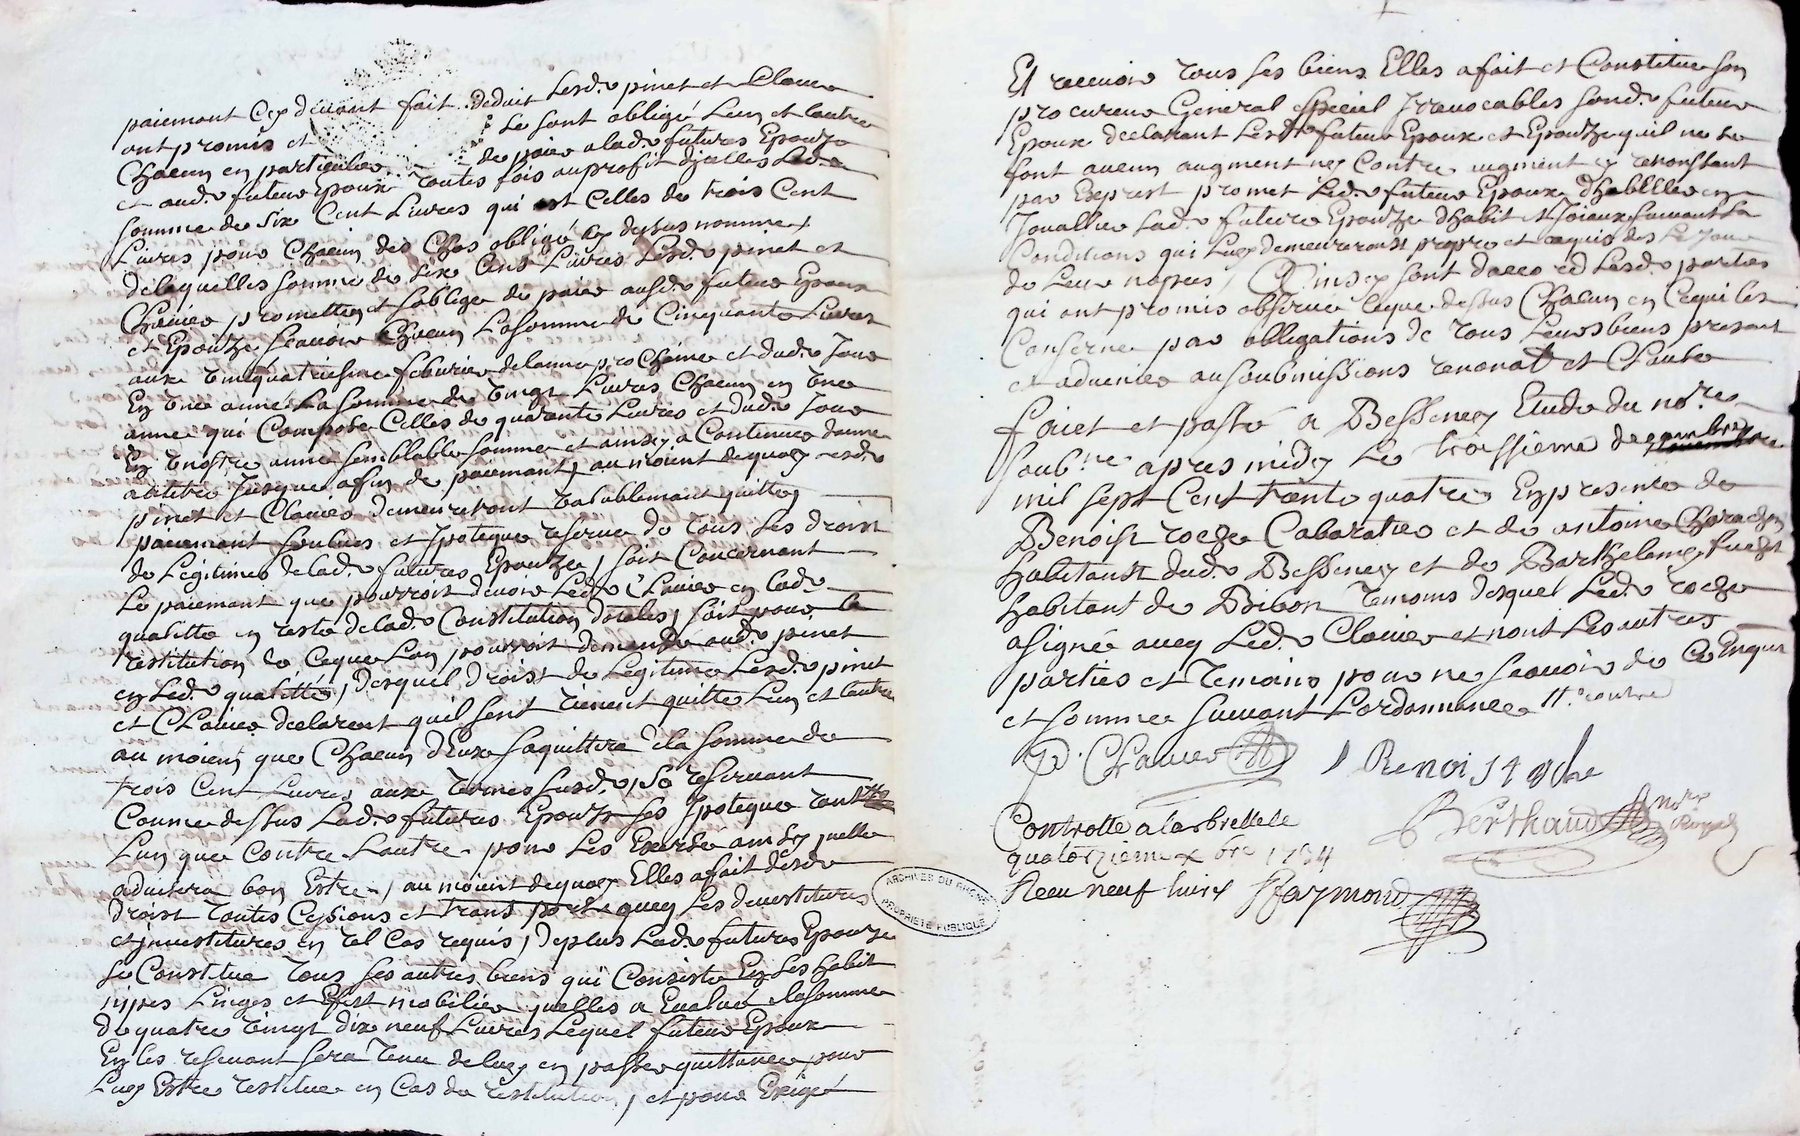 paiemant Cey devant fait deduit Lesd. pinet et Claver
ont promis et Se sont obligé Lun et Lautre
Chacun en particulier de paier a lad. future Epouze
et aud. futeur Epoux toutes fois au profit d'jcelles Lad.
somme de six Cent Livres qui est Celles de trois Cent
Livres pour Chacun des Chos obligé cy dessus nommes
delaquelles somme de six Cens Livres Lesd. pinet et
Claver promettent et soblige de paier ausd. futeur Epoux
et Epouze scavoir Chacun La somme de Cinquante Livres
aux vint quatriesme febvrier de lanne prochaine et dud. Jour
En une anne La somme de vingt Livres Chacun en une
anne qui Compose Celles de quarante Livres et dud. Jour
En une autre anne semblable somme et ainsy a Continuer danne
Jusque afin de paiemant, au moient de quoy Lesd.
pinet et Clavier demeureront valablement quitte
paiemant soubz et Ipoteque reserve de tous Les droist
de Legitimes de lad. future Epouze, soit Concernant
Le paiemant que pourroit devoir Led. Clavier en lad.
qualitte en reste de lad. Constitution dotales, soit pour la
restitution de Ceque Lon pourroit demander aud. pinet
en Led. qualitte, desquel droist de Legitime Lesd. pinet
et Clavier declarent quil sont tienent quitte Lun et Lautre
au moient que Chacun d'Eux saquittera de la somme de
trois Cent Livres aux termes susd., Se reservant
Comme dessus Lad. future Epouze ses Ipoteque tant
Lun que Contre Lautre pour Les Exercé ainsy quelle
advisera bon Estre, au moient de quoy Elles a fait desd.
droist toutes Cessions et transport avec Les devestitures
et investitures en tel Cas requis, de plus Lad. future Epouze
se Constitue tous ses autres biens qui Consiste En ses habit
nipes Linges et Effest mobilier quelles a Evalué a La somme
de quatre vingt dix neuf Livres Lequel futeur Epoux
En les resevant sera tenu de luy en passer quittance pour
Luy Estre restitue en Cas de restitution, et pour Exigé
Et recevoir tous ses biens Elles a fait et Constitue son
procureur General special Irrevocables sond. futeur
Epoux declarant Lesd. futeur Epoux et Epouze quil ne se
font aucun augment ny Contre augment y renonssant
par Exprest promet Led. futeur Epoux d'habiller en
Jouallier Lad. future Epouze d'habit et Joiaux suivant Sa
Conditions qui Luy demeureront propre et aquis des Le Jour
de Leur nopces, Ainsy sont daccord Lesd. parties
qui ont promis observer Ceque dessus Chacun en Cequi les
Conserne par obligations de tous Leurs biens presant
et advenier au soubmissions renonat et Clause
faict et passé a Bessenay Etude du nore
soubne apres midy Le troissieme decembre
mil sept Cent trente quatre En presence de
Benoist roche Cabaratier et de antoine
habitant dud. Bessenay et de Barthelamy
habitant de Bibost temoins desquel Led. roche
a signé avec Led. Clavier et nont Les autres
parties et temoins pour ne scavoir de Ce Enquis
et somme suivant Lordonnance
P. Claver Benoist roche
Berthaud nore Royal
Controlle a larbrelle le
quatorzieme xbre 1734
Receu neuf livres Raymond
ARCHIVES DU RHONE
PROPRIETE PUBLIQUE